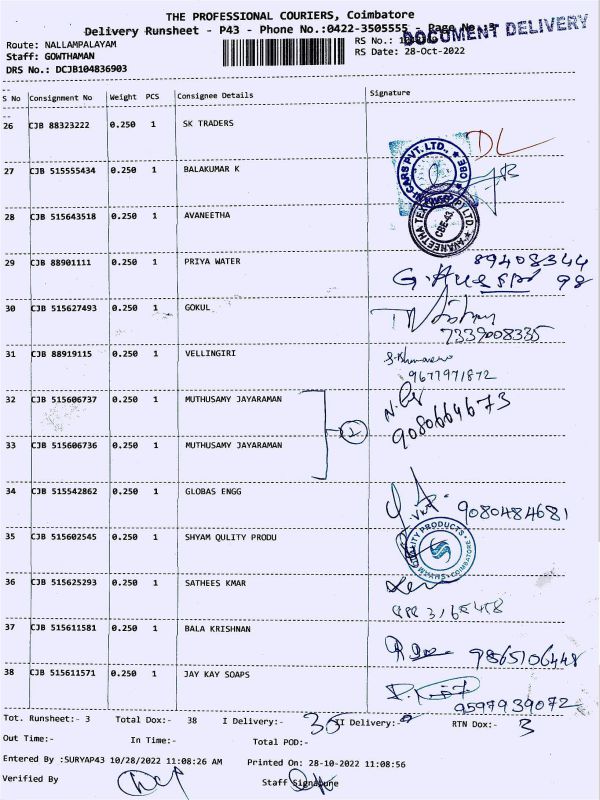 THE PROFESSIONAL COURIERS, Coimbatore
Delivery Runsheet - P43 - Phone No.:0422-3505555 - Page No. 3
DOCUMENT DELIVERY
Route: NALLAMPALAYAM
RS No.:
Staff: GOWTHAMAN
RS Date: 28-Oct-2022
DRS No.: DCJB104836903
S No Consignment No Weight PCS Consignee Details Signature
26 CJB 88323222 0.250 1 SK TRADERS
DL
27 CJB 515555434 0.250 1 BALAKUMAR K
NI-CARS PVT. LTD., CBE
28 CJB 515643518 0.250 1 AVANEETHA
AVANEETHA TEXTILES P LTD. CBE-43
29 CJB 88901111 0.250 1 PRIYA WATER
89408344
98
30 CJB 515627493 0.250 1 GOKUL
7339008335
31 CJB 88919115 0.250 1 VELLINGIRI
9677971872
32 CJB 515606737 0.250 1 MUTHUSAMY JAYARAMAN
9080664673
33 CJB 515606736 0.250 1 MUTHUSAMY JAYARAMAN
34 CJB 515542862 0.250 1 GLOBAS ENGG
9080484681
35 CJB 515602545 0.250 1 SHYAM QULITY PRODU
SHYAM QUALITY PRODUCTS COIMBATORE
36 CJB 515625293 0.250 1 SATHEES KMAR
37 CJB 515611581 0.250 1 BALA KRISHNAN
9865106448
38 CJB 515611571 0.250 1 JAY KAY SOAPS
9597939072
Tot. Runsheet:- 3 Total Dox:- 38 I Delivery:- 35 II Delivery:- RTN Dox:- 3
Out Time:- In Time:- Total POD:-
Entered By :SURYAP43 10/28/2022 11:08:26 AM Printed On: 28-10-2022 11:08:56
Verified By Staff Signature